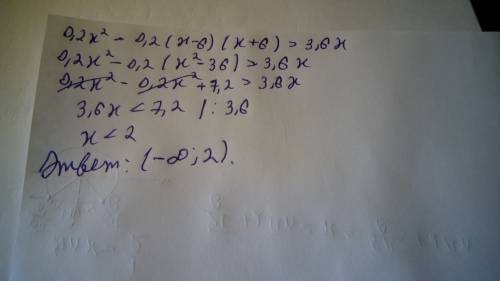 0,2x² - 0,2(x-6)(x+6) > 3,6x
0,2x² - 0,2(x²-36) > 3,6x
0,2x² - 0,2x² + 7,2 > 3,6x
3,6x < 7,2 | : 3,6
x < 2
Ответ: (-∞; 2).